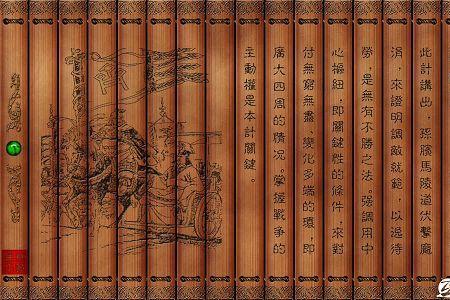 此計講出，孫臏馬陵道伏擊龐
涓，來證明調敵就範，以逸待
勞，是無有不勝之法。強調用中
心樞紐，即關鍵性的條件，來對
付無窮無盡、變化多端的環，即
廣大四周的情況。掌握戰爭的
主動權是本計關鍵。